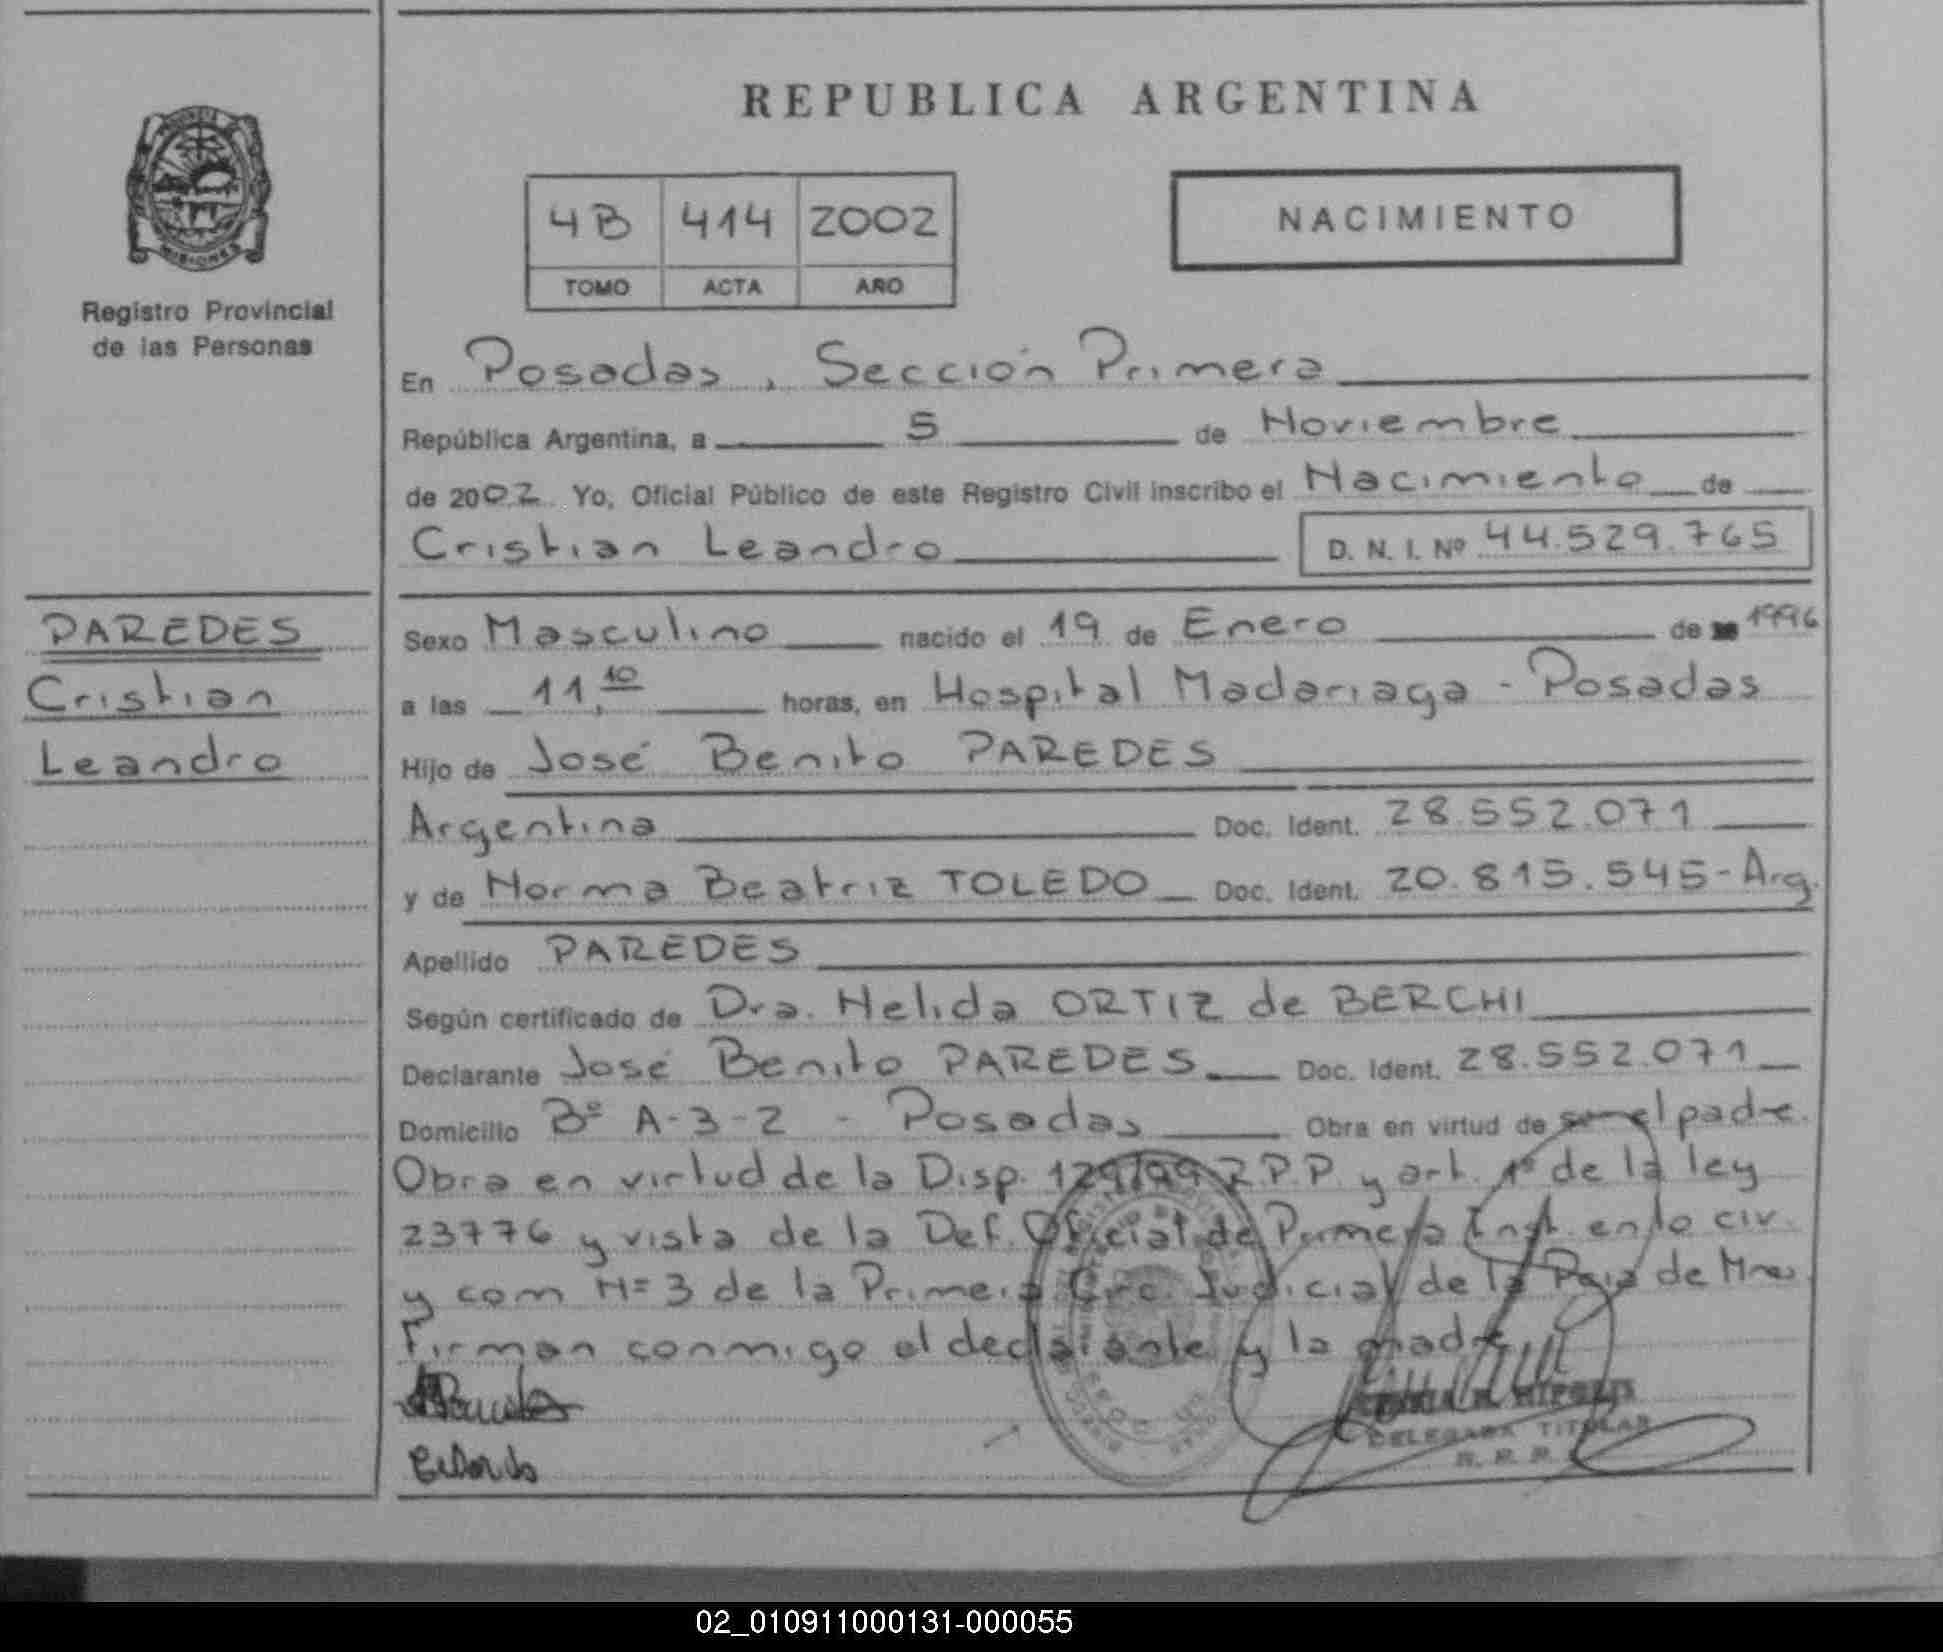 REPUBLICA ARGENTINA
4B 414 2002
TOMO ACTA AÑO
NACIMIENTO
MISIONES
Registro Provincial
de las Personas
En Posadas, Sección Primera
República Argentina, a 5 de Noviembre
de 2002 Yo, Oficial Público de este Registro Civil inscribo el Nacimiento de
Cristian Leandro D. N. I. Nº 44.529.765
PAREDES
Cristian
Leandro
Sexo Masculino nacido el 19 de Enero de 1996
a las 11,10 horas, en Hospital Madariaga - Posadas
Hijo de José Benito PAREDES
Argentina Doc. Ident. 28.552.071
y de Norma Beatriz TOLEDO Doc. Ident. 20.815.545-Arg.
Apellido PAREDES
Según certificado de Dra. Nelida ORTIZ de BERCHI
Declarante José Benito PAREDES Doc. Ident. 28.552.071
Domicilio Bº A-3-2 - Posadas Obra en virtud de ser el padre.
Obra en virtud de la Disp. 129/99 R.P.P. y art. 1º de la ley
23776 y vista de la Def. Oficial de Primera Inst. en lo civ.
y com Nº 3 de la Primera Circ. Judicial de la Pcia de Mnes.
Firman conmigo el declarante y la madre.
DELEGADA TITULAR
R. P. P.
02_010911000131-000055